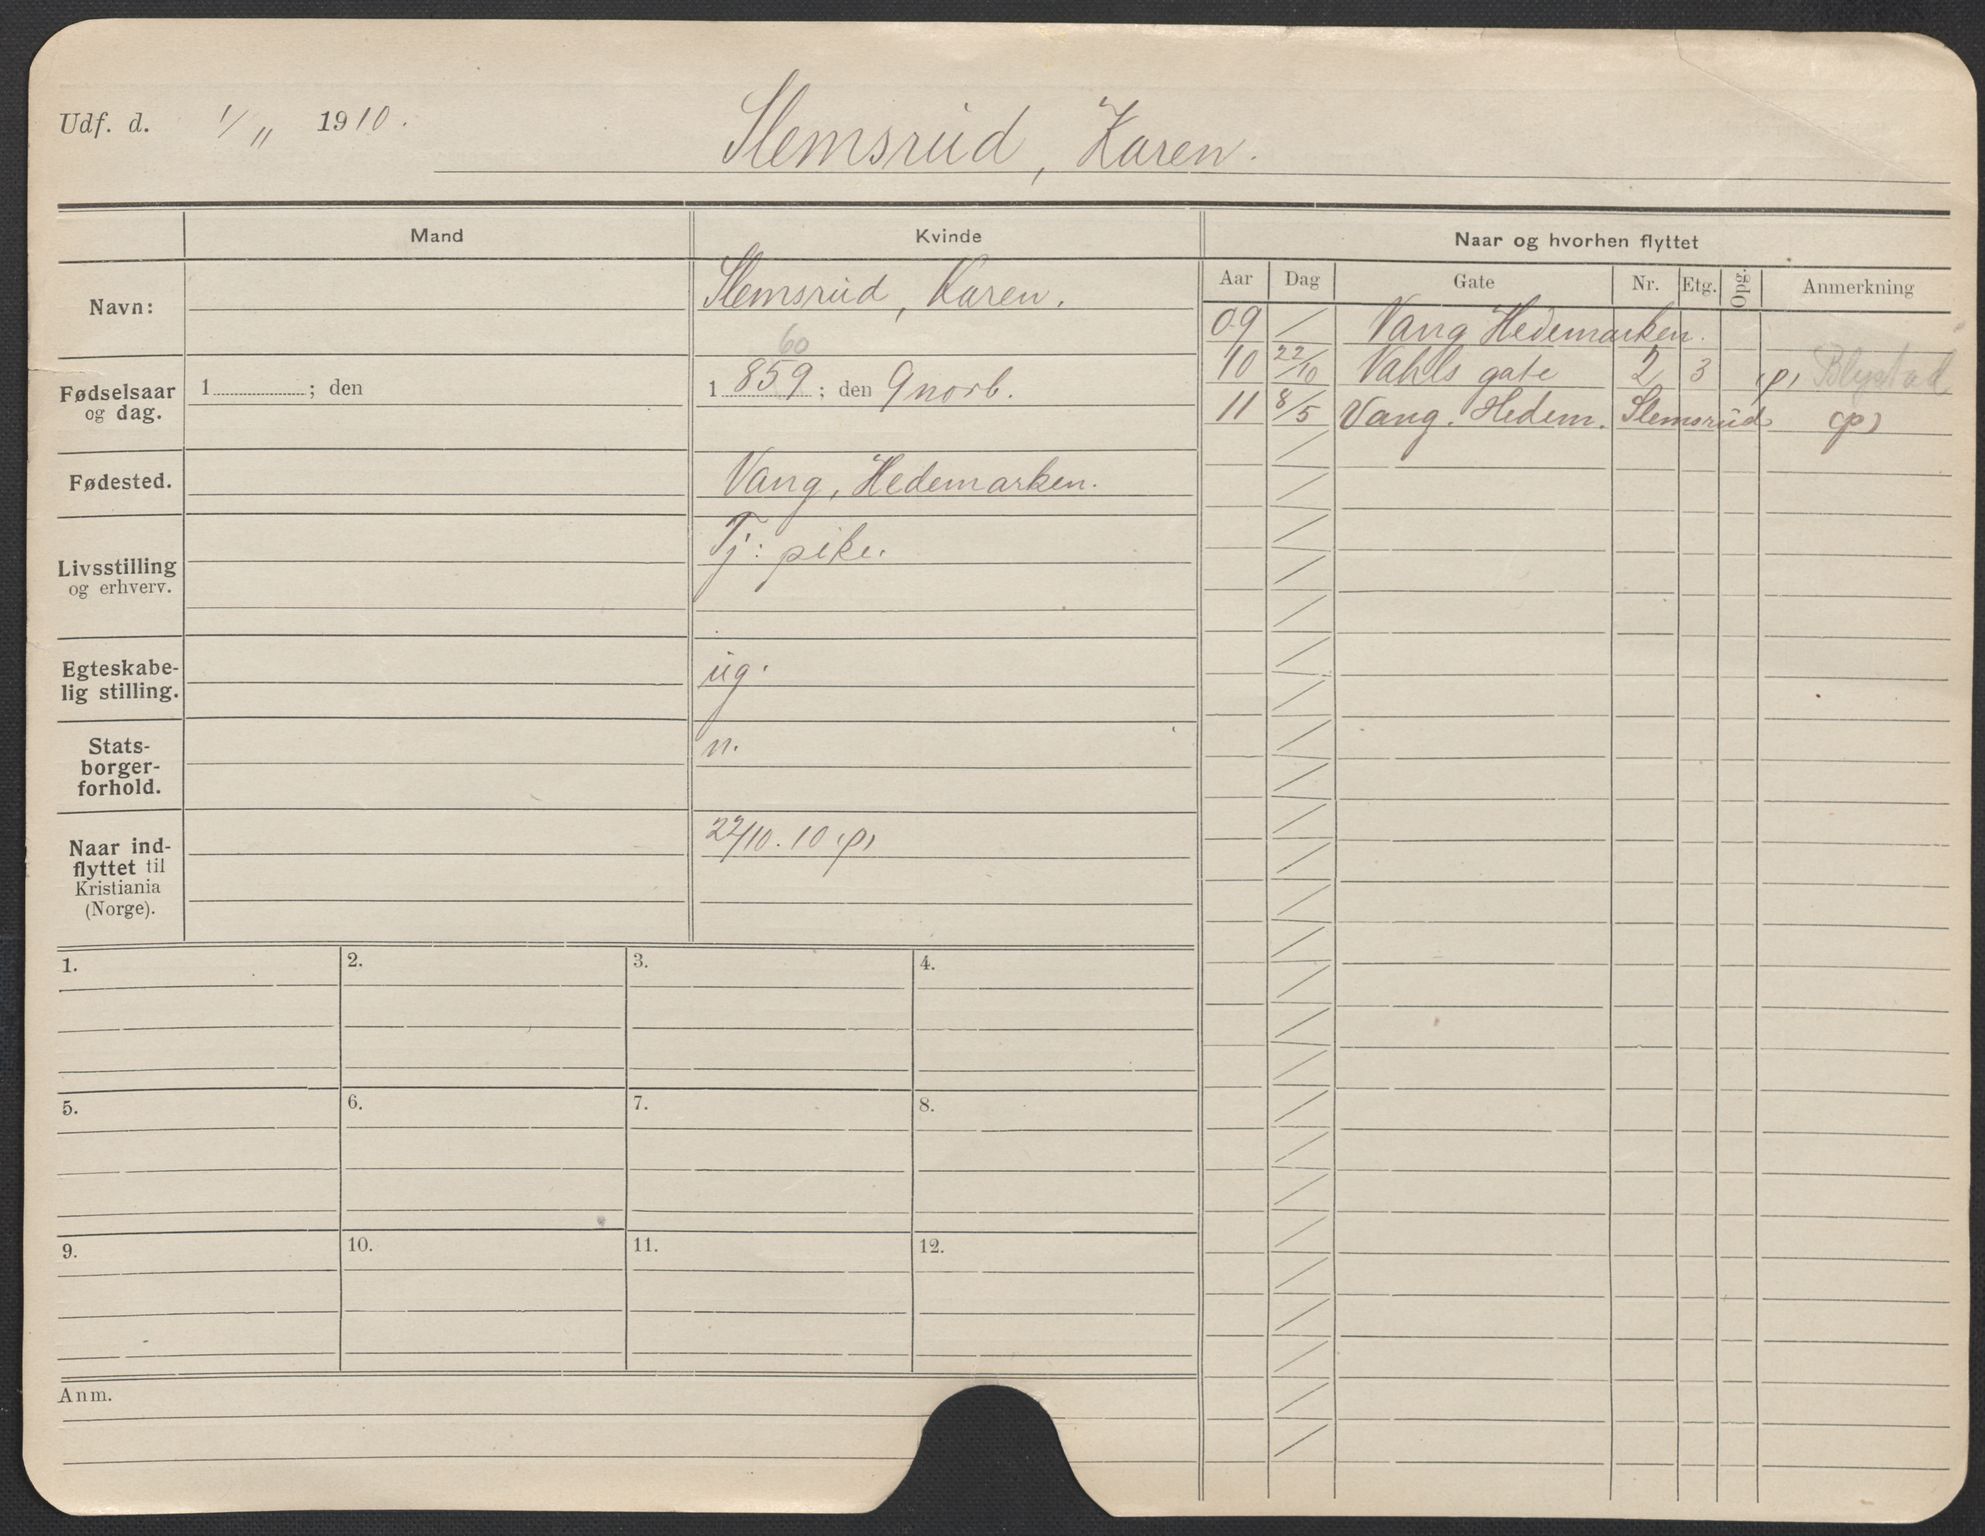 Udf. d. 1/11 1910.
Slemsrud, Karen.
Mand Kvinde Naar og hvorhen flyttet
Aar Dag Gate Nr. Etg. Opg. Anmerkning
Navn: Slemsrud, Karen.
09 / Vang Hedemarken.
10 22/10 Vahls gate 2 3 (p) Blystad
11 8/5 Vang. Hedem. Slemsrud (p)
60
Fødselsaar 1 ; den 1 859 ; den 9 novb.
og dag.
Fødested. Vang, Hedemarken.
Livsstilling Tj: pike.
og erhverv.
Egteskabe- ug.
lig stilling.
Stats- n.
borger-
forhold.
Naar ind- 22/10.10 (p)
flyttet til
Kristiania
(Norge).
1. 2. 3. 4.
5. 6. 7. 8.
9. 10. 11. 12.
Anm.